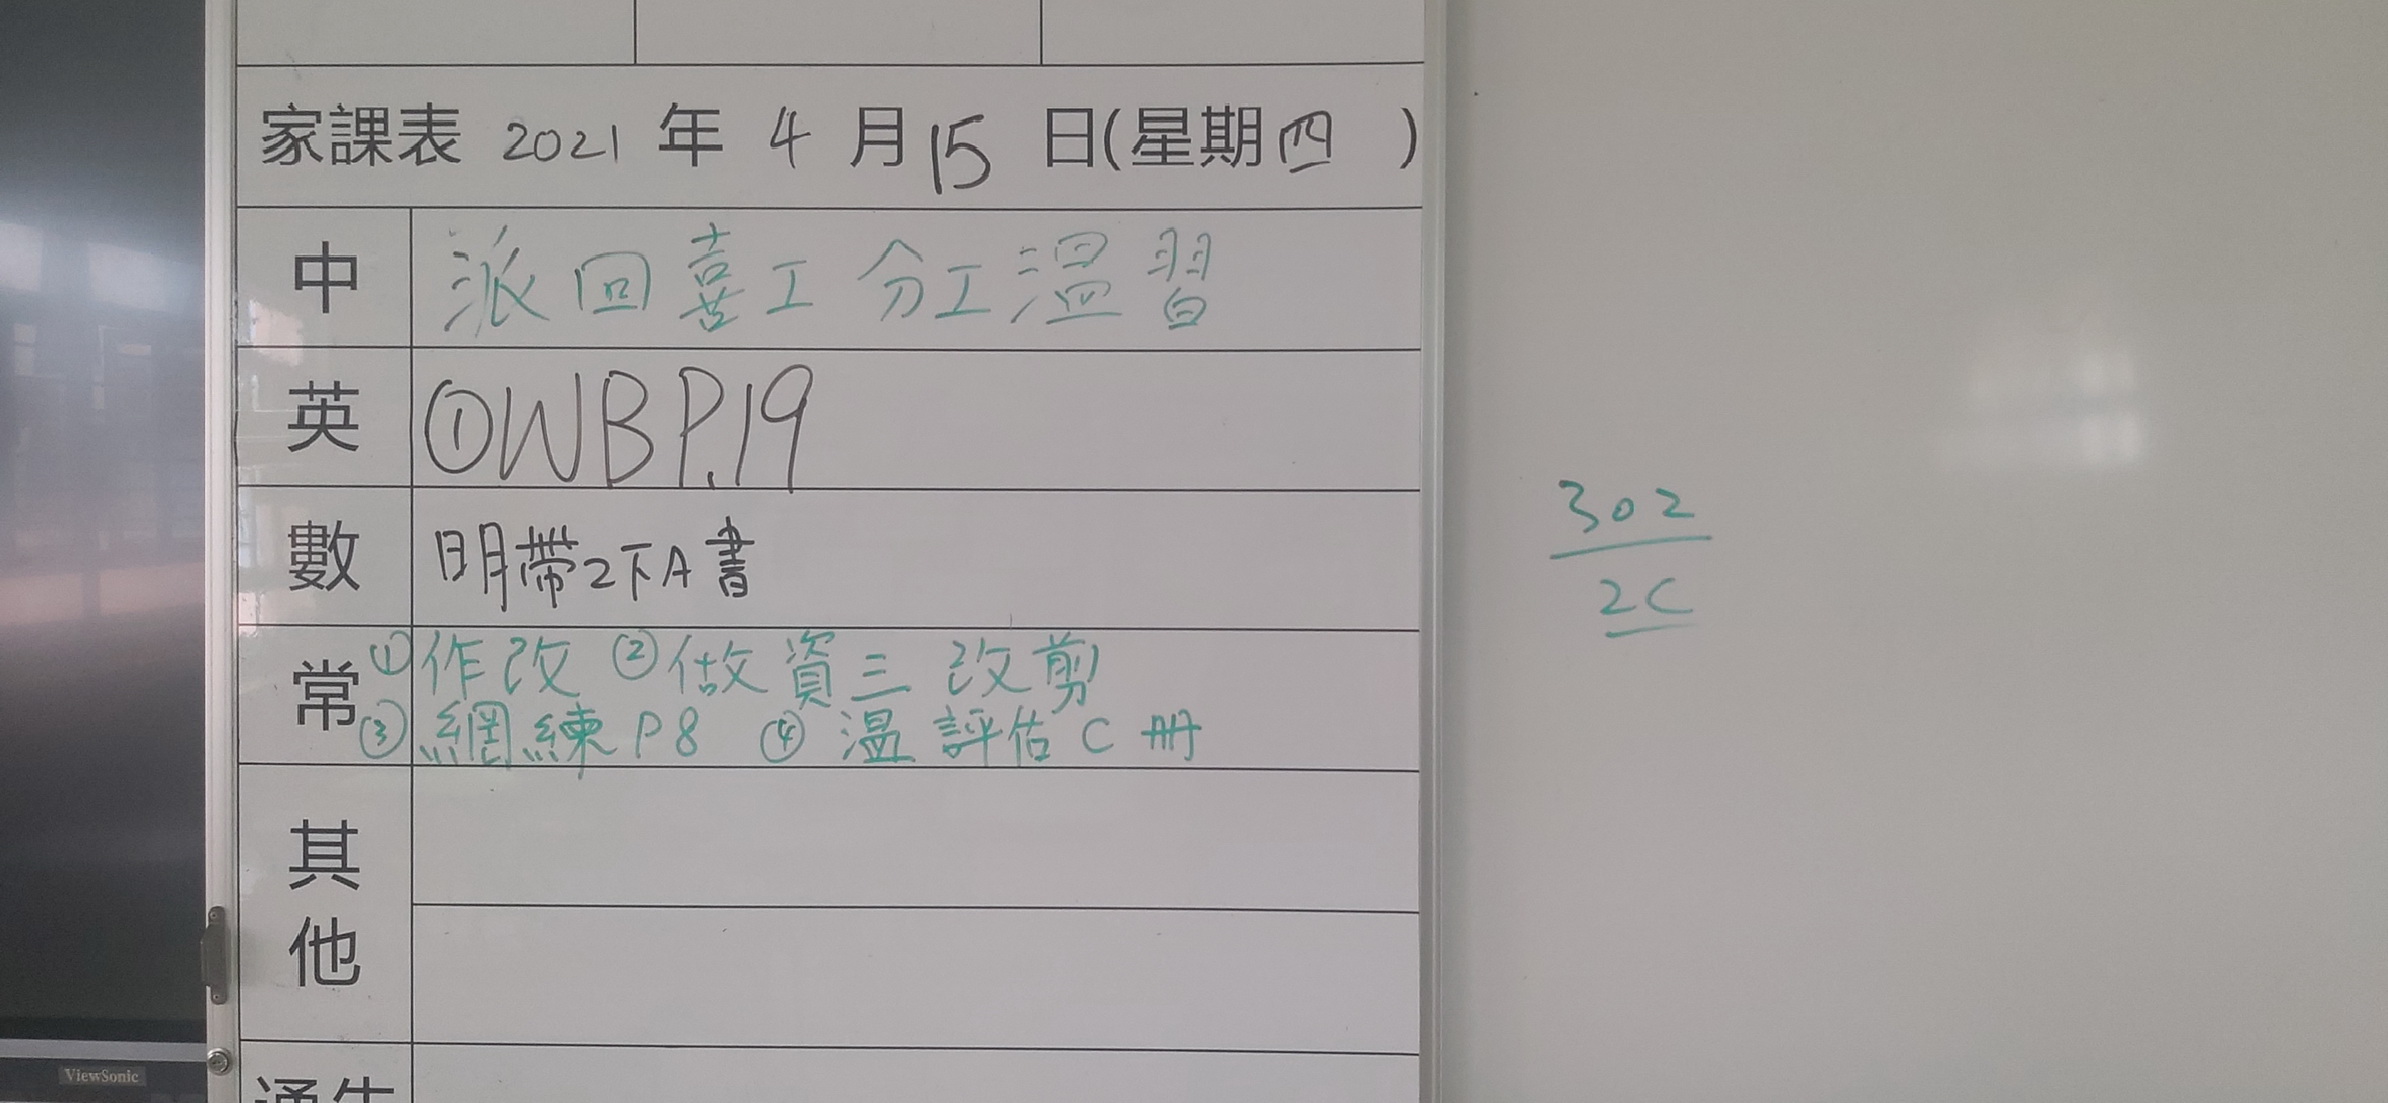 家課表 2021 年 4 月 15 日(星期四 )
中 派回喜工 分工溫習
英 ①WB P.19
數 明帶2下A書
常 ①作改 ②做資三 改剪
③網練P8 ④溫評估C冊
其他
通告
302
2C
ViewSonic